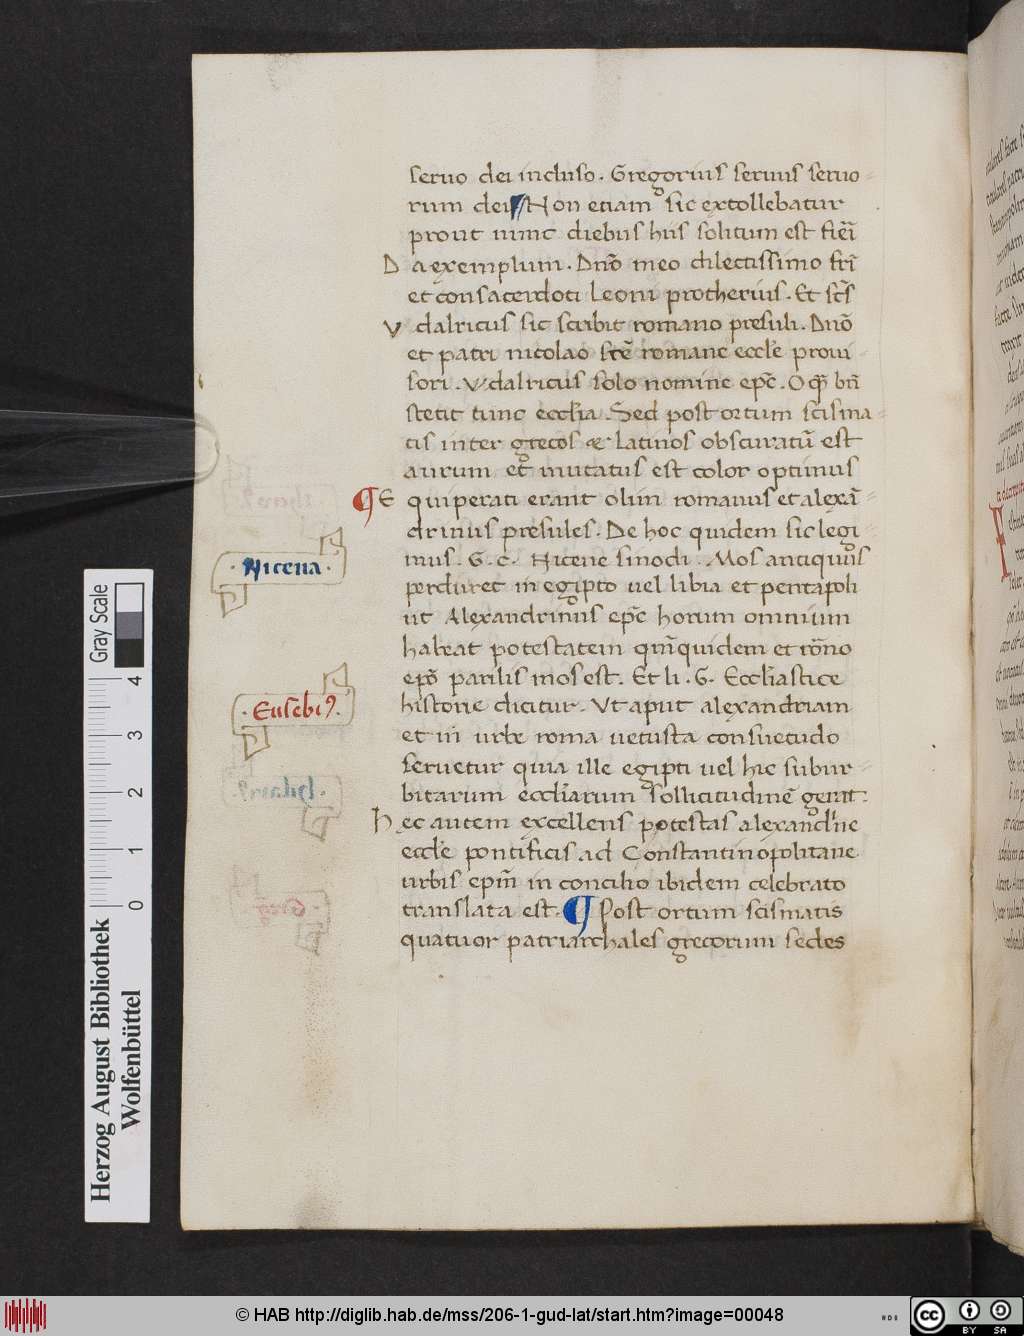 seruo dei incluso. Gregorius seruus seruo-
rum dei ¶ Non etiam sic extollebatur
prout nunc diebus his solitum est fieri̅
Da exemplum. Dn̅o meo dilectissimo fr̅i
et consacerdoti Leoni protherius. Et sc̅s
Vdalricus sic scribit romano presuli. Dn̅o
et patri nicolao sc̅e romane eccl̅e proui
sori. Vdalricus solo nomine ep̅c. O q̅ bn̅
stetit tunc eccl̅ia. Sed post ortum scisma-
tis inter grecos & latinos obscuratu̅ est
aurum et mutatus est color optimus
¶ Equiperati erant olim romanus et alexa̅-
drinus presules. De hoc quidem sic legi
mus. G. c. Nicene sinodi. Mos antiquus
perduret in egipto uel libia et pentapoli
ut Alexandrinus ep̅c horum omnium
habeat potestatem qm̅ quidem et ro̅no
ep̅o parilis mos est. Et li. G. Eccl̅iastice
historie dicitur. Vt aput alexandriam
et in urbe roma uetusta consuetudo
seruetur quia ille egipti uel hic subur-
bitarum eccl̅iarum sollicitudine̅ gerat:
Hec autem excellens potestas alexandrine
eccl̅e pontificis ad Constantinopolitane
urbis ep̅m in concilio ibidem celebrato
translata est. ¶ Post ortum scismatis
quatuor patriarchales grecorum sedes
·Nicena·
·Eusebiꝰ.
Herzog August Bibliothek
Wolfenbüttel
Gray Scale
0 1 2 3 4
© HAB http://diglib.hab.de/mss/206-1-gud-lat/start.htm?image=00048
cc BY SA